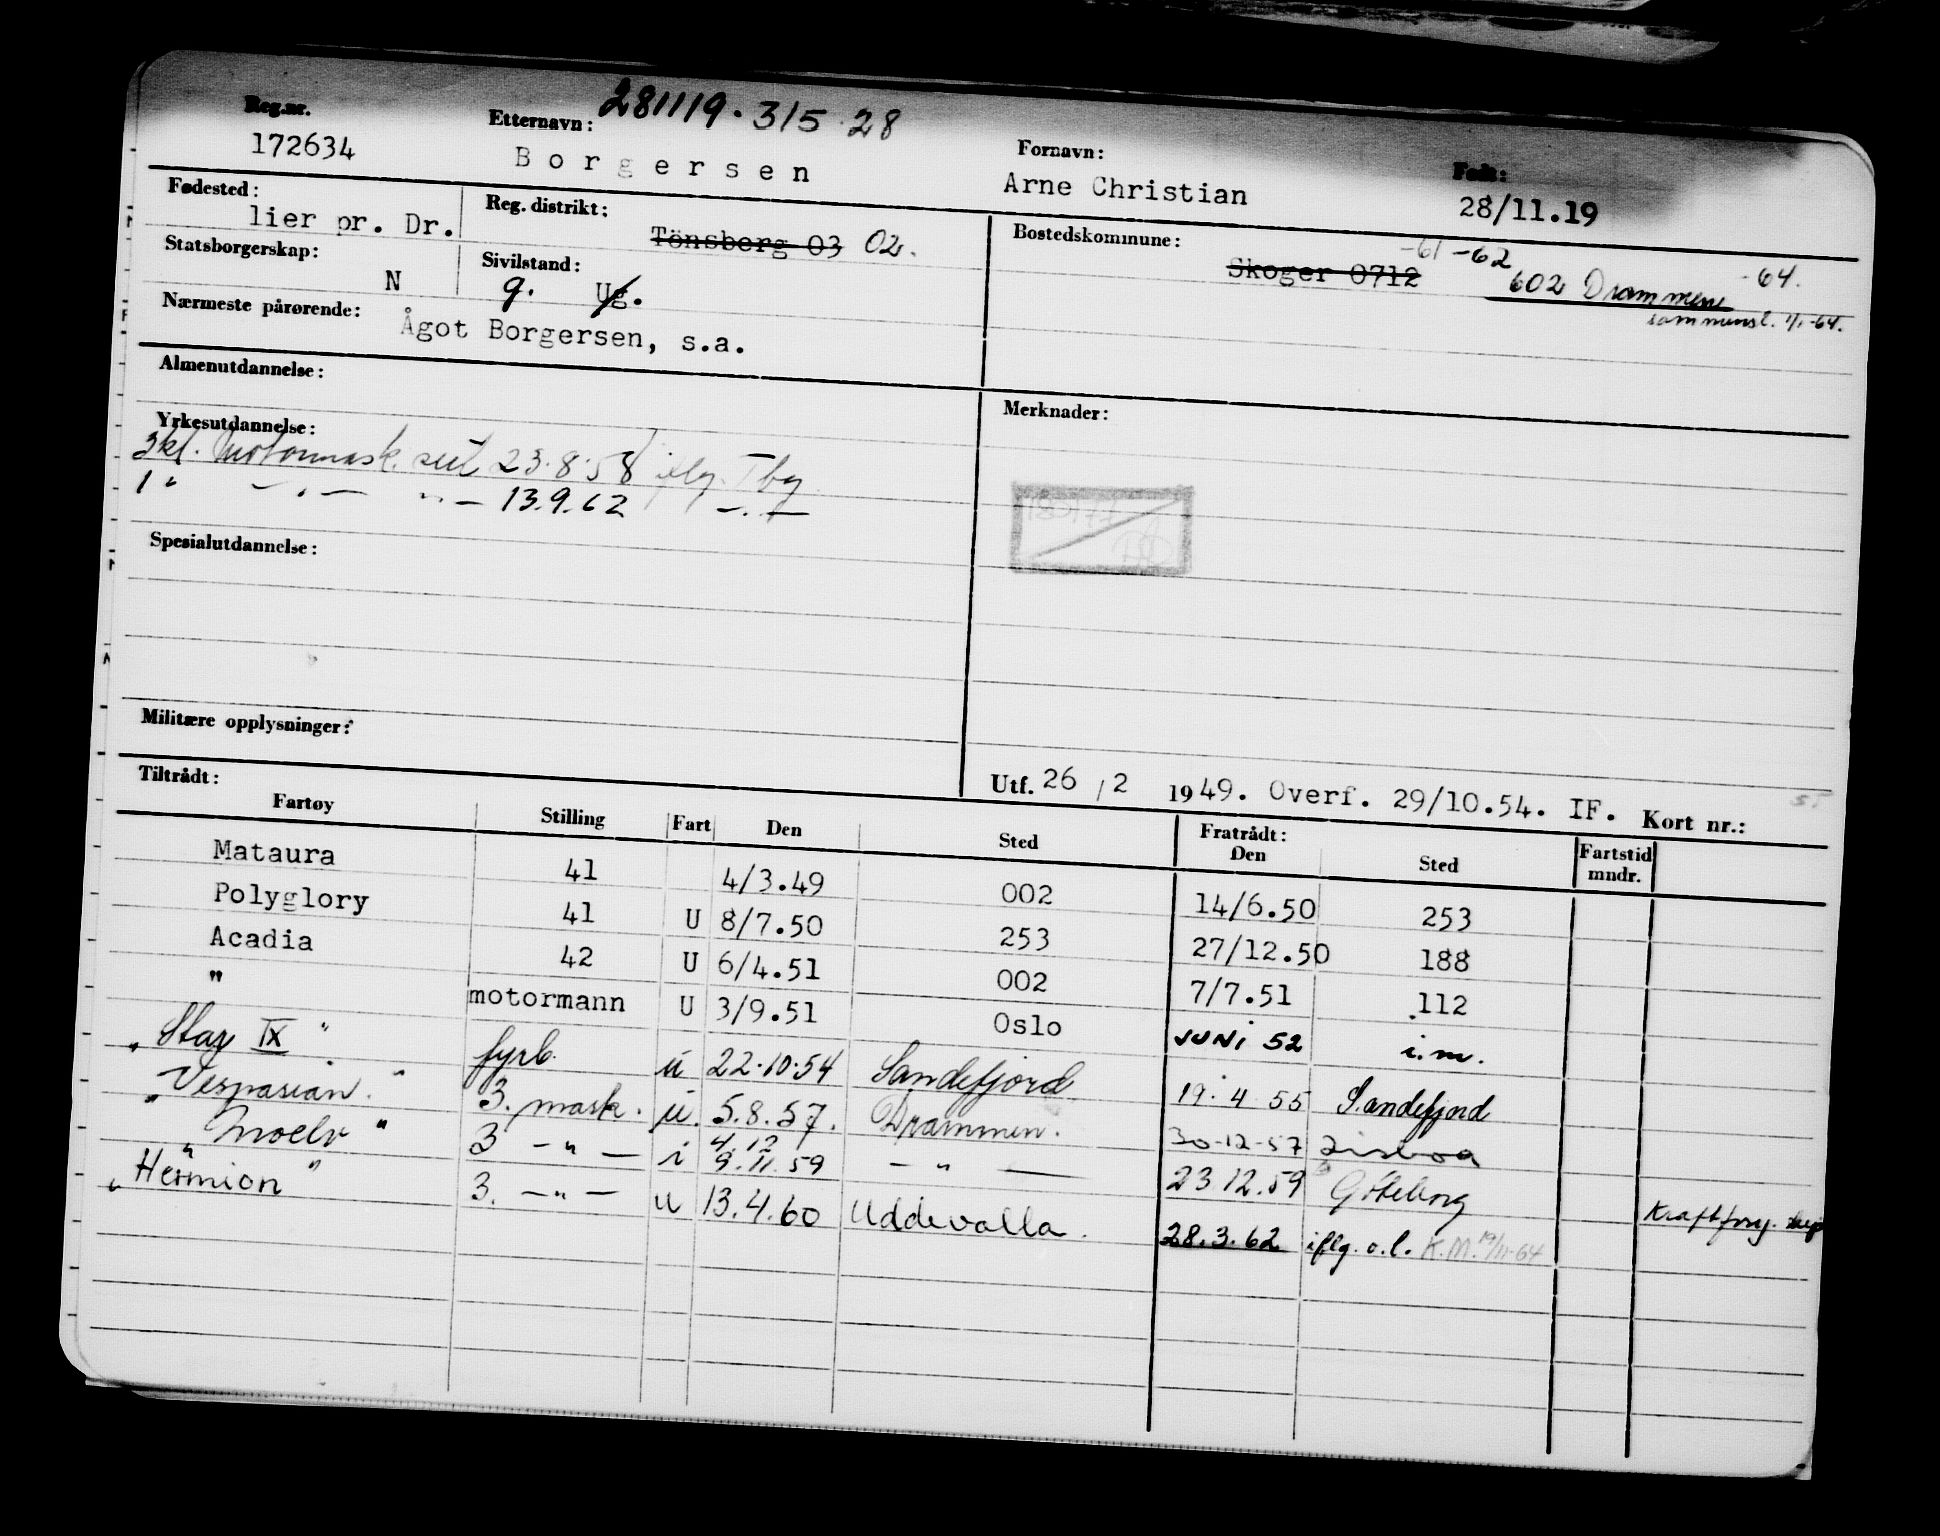 281119.315 28
Reg.nr. Etternavn: Fornavn: Født:
172634 Borgersen Arne Christian 28/11.19
Fødested: Reg. distrikt: Bostedskommune:
lier pr. Dr. Tönsberg 03 02. -61 -62 -64.
Skoger 0712 602 Drammen
sammensl. 1/1-64.
Statsborgerskap: Sivilstand:
N g. Ug.
Nærmeste pårørende:
Ågot Borgersen, s.a.
Almenutdannelse: Merknader:
Yrkesutdannelse:
3kl. Motormask. sert 23.8.58 iflg. Tbg
1 " — " — " — 13.9.62 — " —
Spesialutdannelse:
Militære opplysninger:
Utf. 26 / 2 1949. Overf. 29/10.54. IF. Kort nr.:
Tiltrådt: Fratrådt:
Fartøy Stilling Fart Den Sted Den Sted Fartstid mndr.
Mataura 41 4/3.49 002 14/6.50 253
Polyglory 41 U 8/7.50 253 27/12.50 188
Acadia 42 U 6/4.51 002 7/7.51 112
" motormann U 3/9.51 Oslo JUNI 52 i.m.
"Star IX" fyrb. u 22.10.54 Sandefjord 19.4 55 Sandefjord
"Vespasian" 3. mask. u. 5.8.57. Drammen. 30-12-57 Lisboa
"Moelv" 3 — " — i 4.12 9.11.59 — " — 23 12.59 Göteborg
"Hermion" 3. — " — u 13.4.60 Uddevalla. 28.3.62 iflg. o.l. K.M. 19/11-64 Kraftforsy.